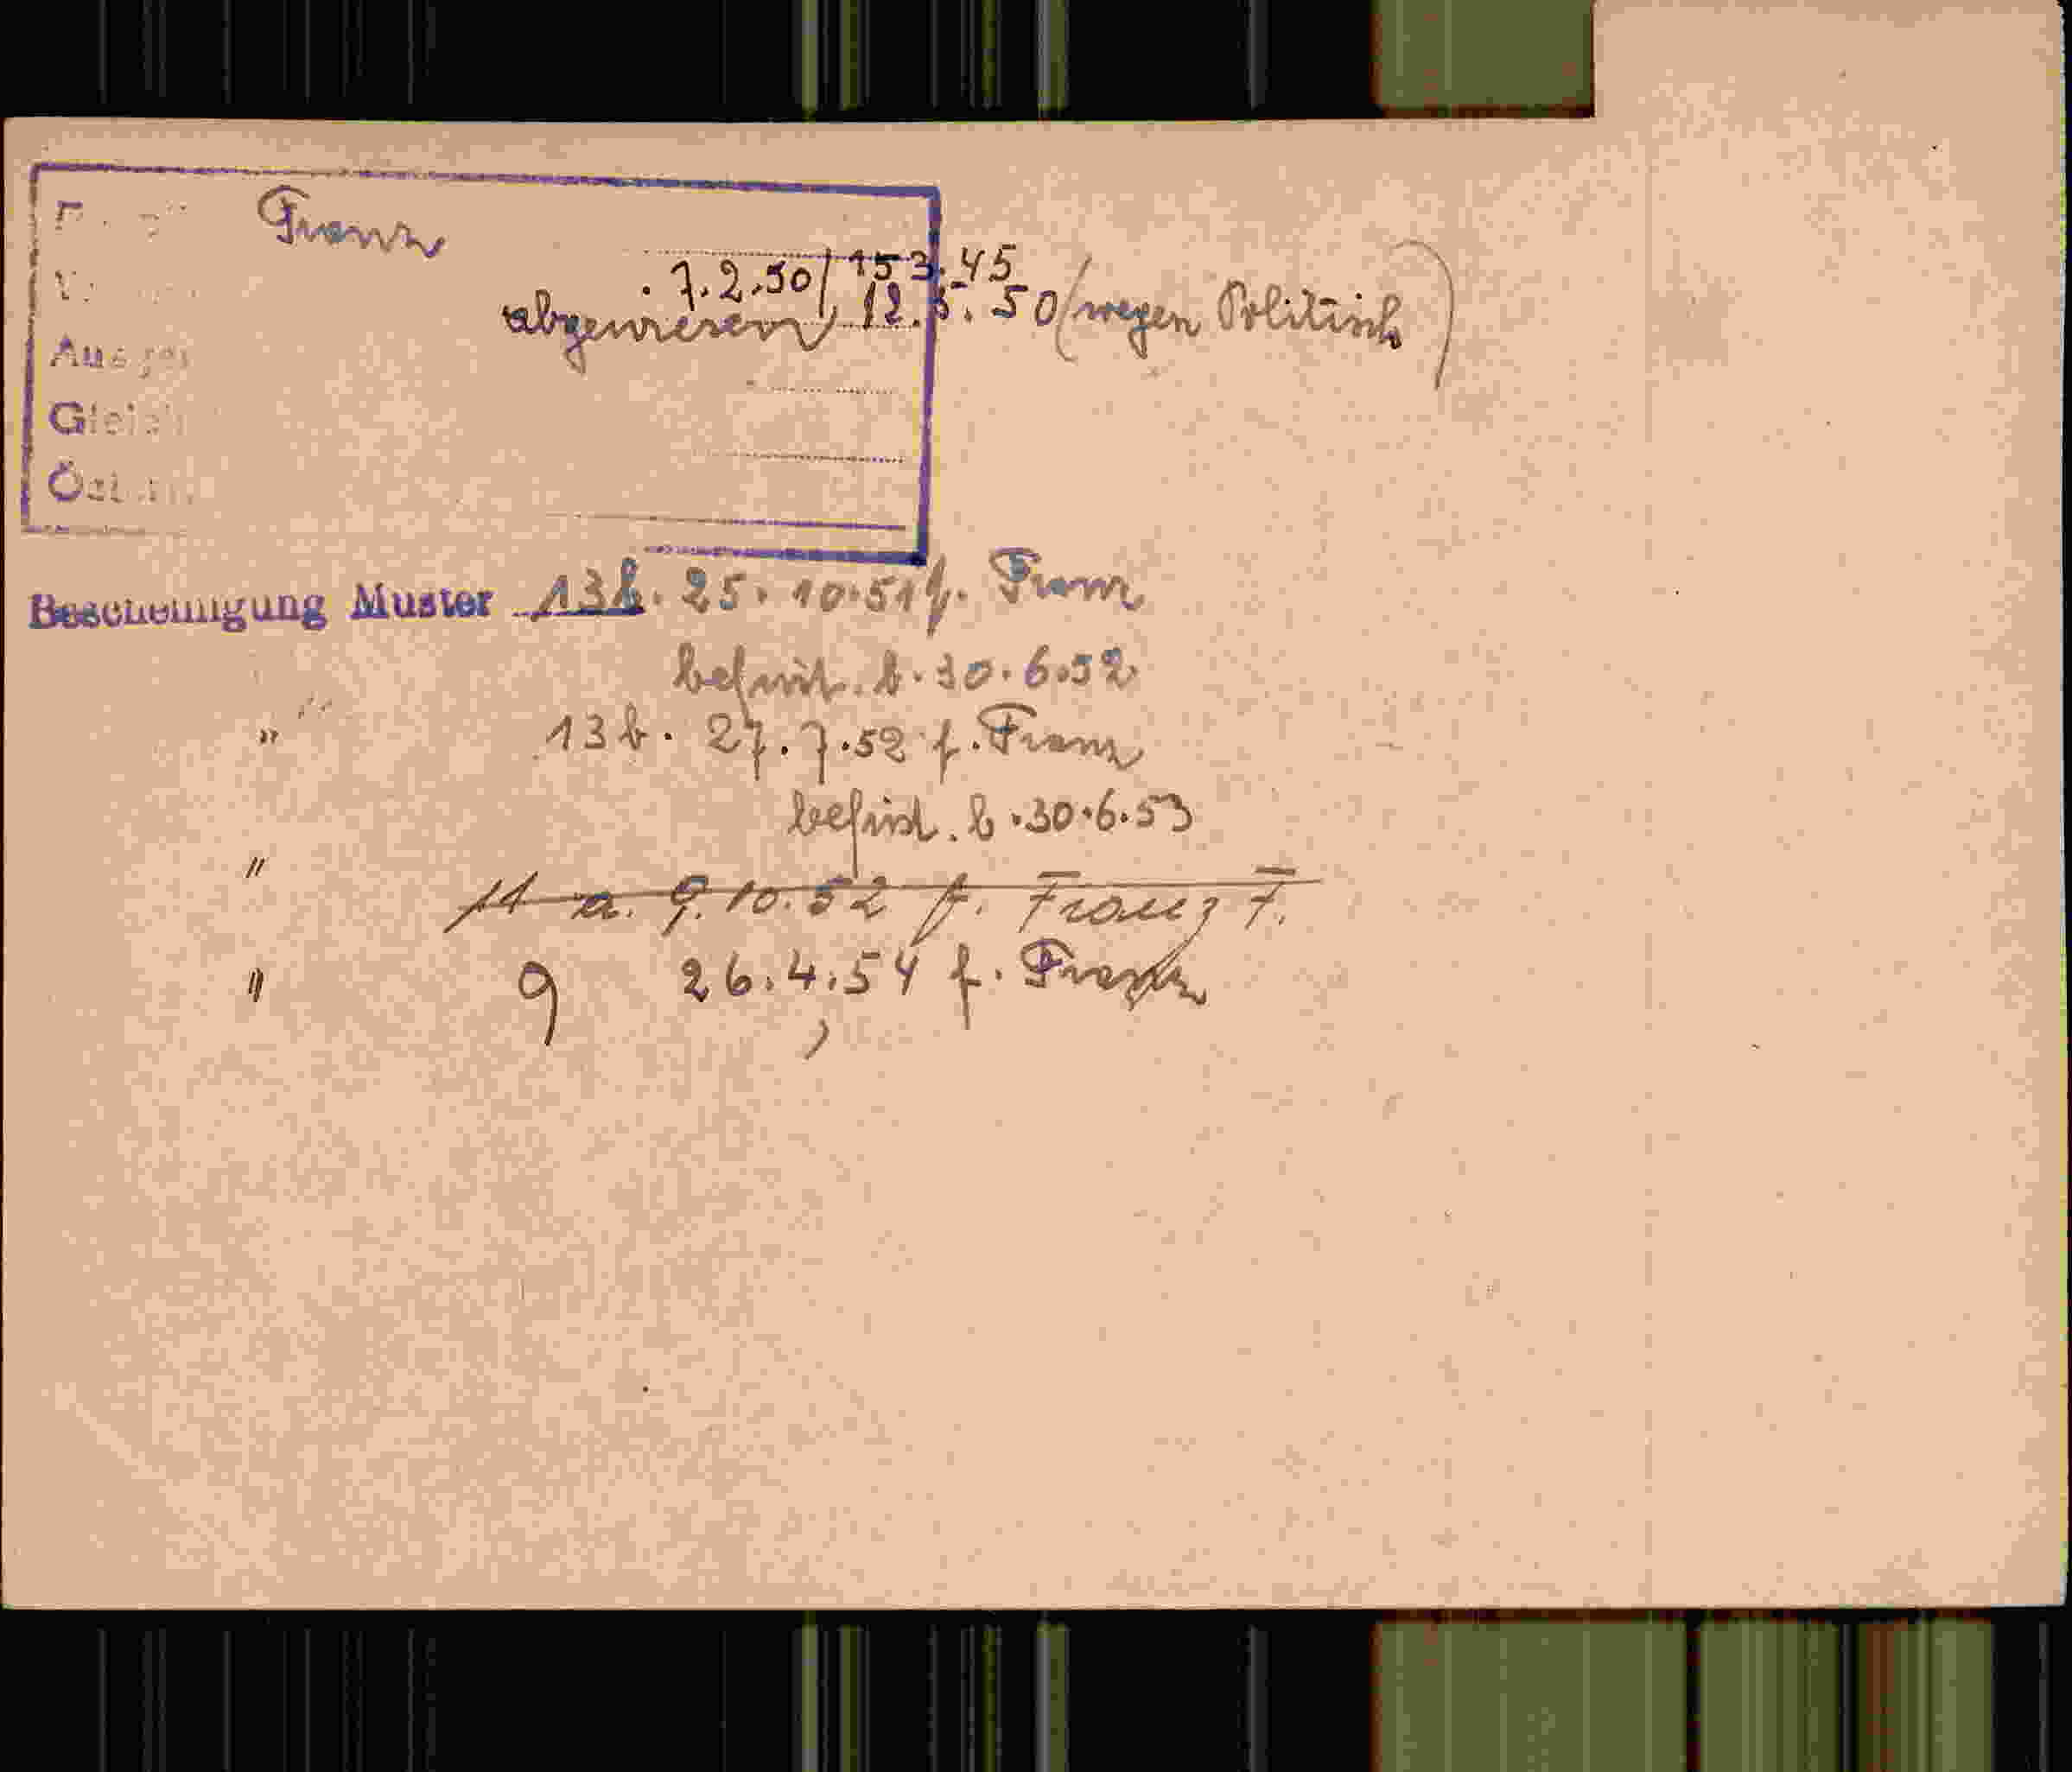 Franz
7.2.50/ 153.45
abgewiesen, 12.5.50 (wegen Politisch)
Bescheinigung Muster 13b. 25.10.51 f. Franz
befrist. b. 30.6.52
" 13b. 27.7.52 f. Franz
befrist. b. 30.6.53
" 11 a. 9.10.52 f. Franz F.
" 9 26.4.54 f. Franz